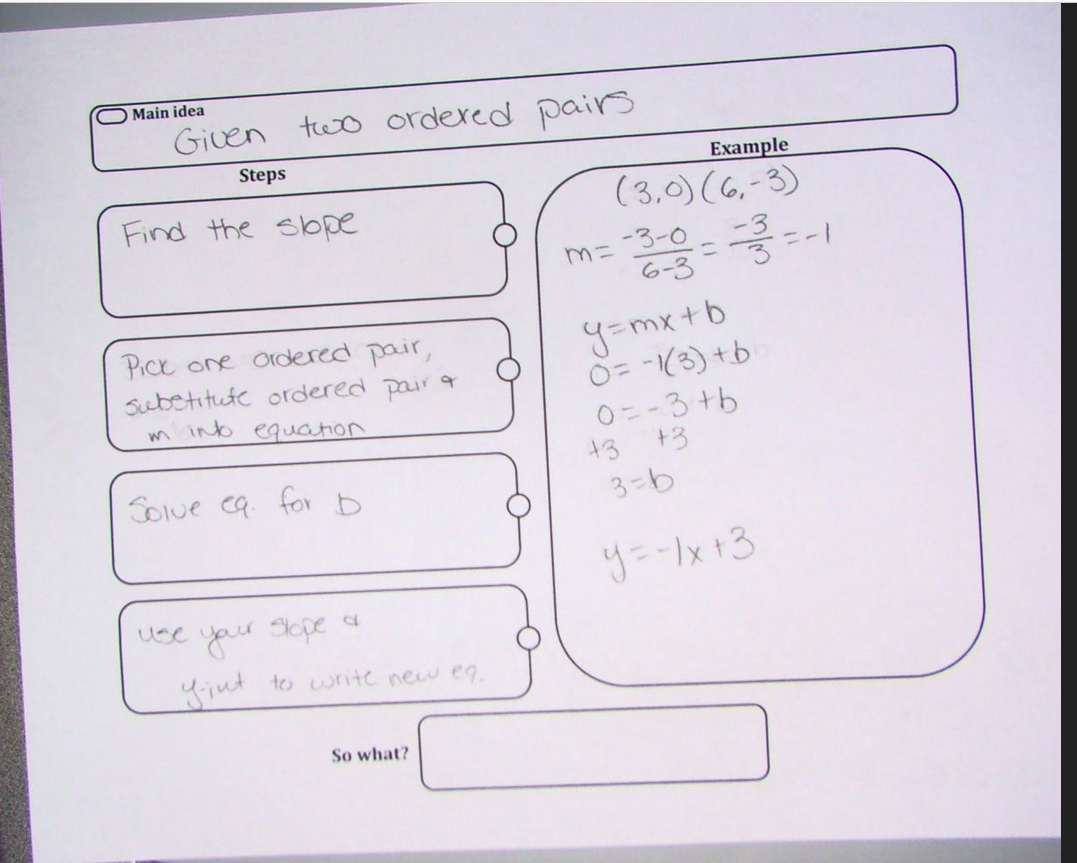 Main idea
Given two ordered pairs
Steps
Find the slope
Pick one ordered pair,
substitute ordered pair &
m into equation
Solve eq. for b
use your slope &
y-int to write new eq.
Example
(3,0) (6,-3)
m = -3-0 / 6-3 = -3 / 3 = -1
y=mx+b
0= -1(3) +b
0= -3 +b
+3 +3
3=b
y = -1x+3
So what?